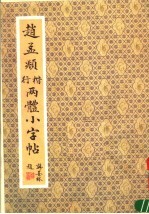 趙孟頫
楷行
兩體小字帖